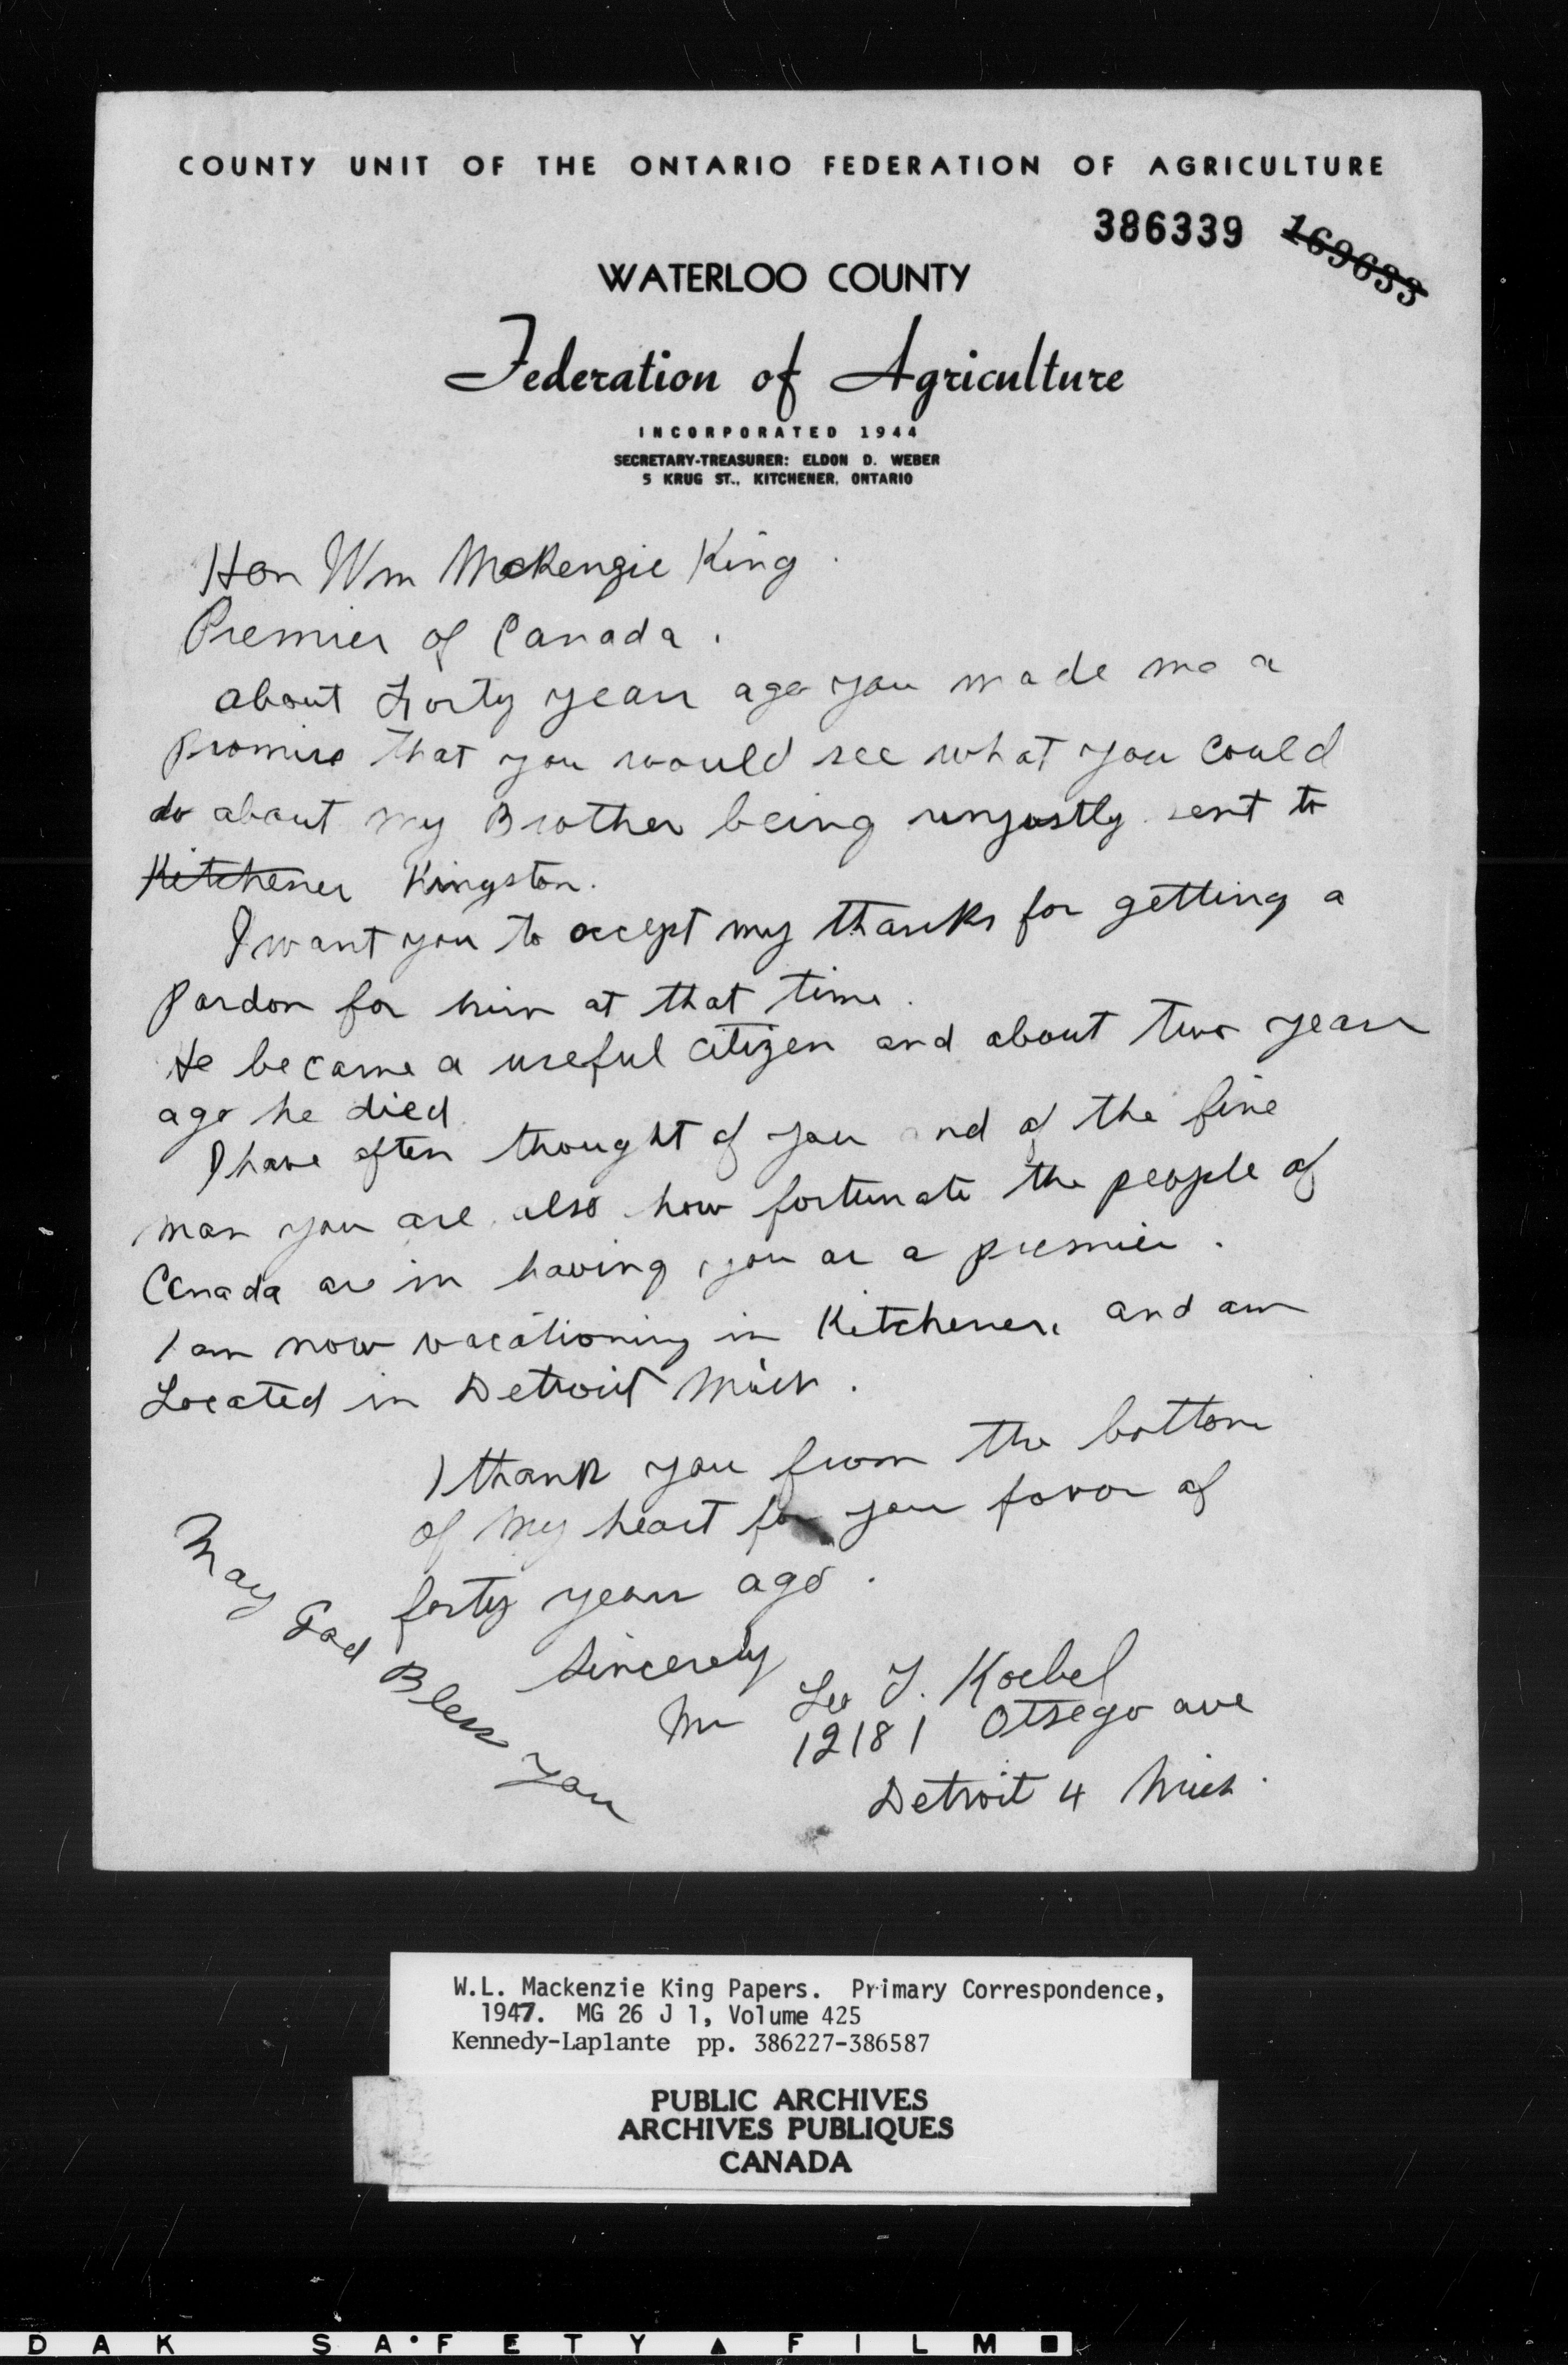 COUNTY UNIT OF THE ONTARIO FEDERATION OF AGRICULTURE
386339 169633
WATERLOO COUNTY
Federation of Agriculture
INCORPORATED 1944
SECRETARY-TREASURER: ELDON D. WEBER
5 KRUG ST., KITCHENER, ONTARIO
Hon Wm McKenzie King.
Premier of Canada.
about Forty years ago you made me a
promise that you would see what you could
do about my Brother being unjustly sent to
Kitchener Kingston.
I want you to accept my thanks for getting a
pardon for him at that time.
He became a useful citizen and about two years
ago he died.
I have often thought of you and of the fine
man you are also how fortunate the people of
Canada are in having you as a premier.
I am now vacationing in Kitchener, and am
Located in Detroit Mich.
I thank you from the bottom
of my heart for your favor of
forty years ago.
Sincerely
May God Bless You
Mr Leo J. Koebel
12181 Otsego ave
Detroit 4 Mich.
W.L. Mackenzie King Papers. Primary Correspondence,
1947. MG 26 J 1, Volume 425
Kennedy-Laplante pp. 386227-386587
PUBLIC ARCHIVES
ARCHIVES PUBLIQUES
CANADA
DAK SA•FETY▲FILM■